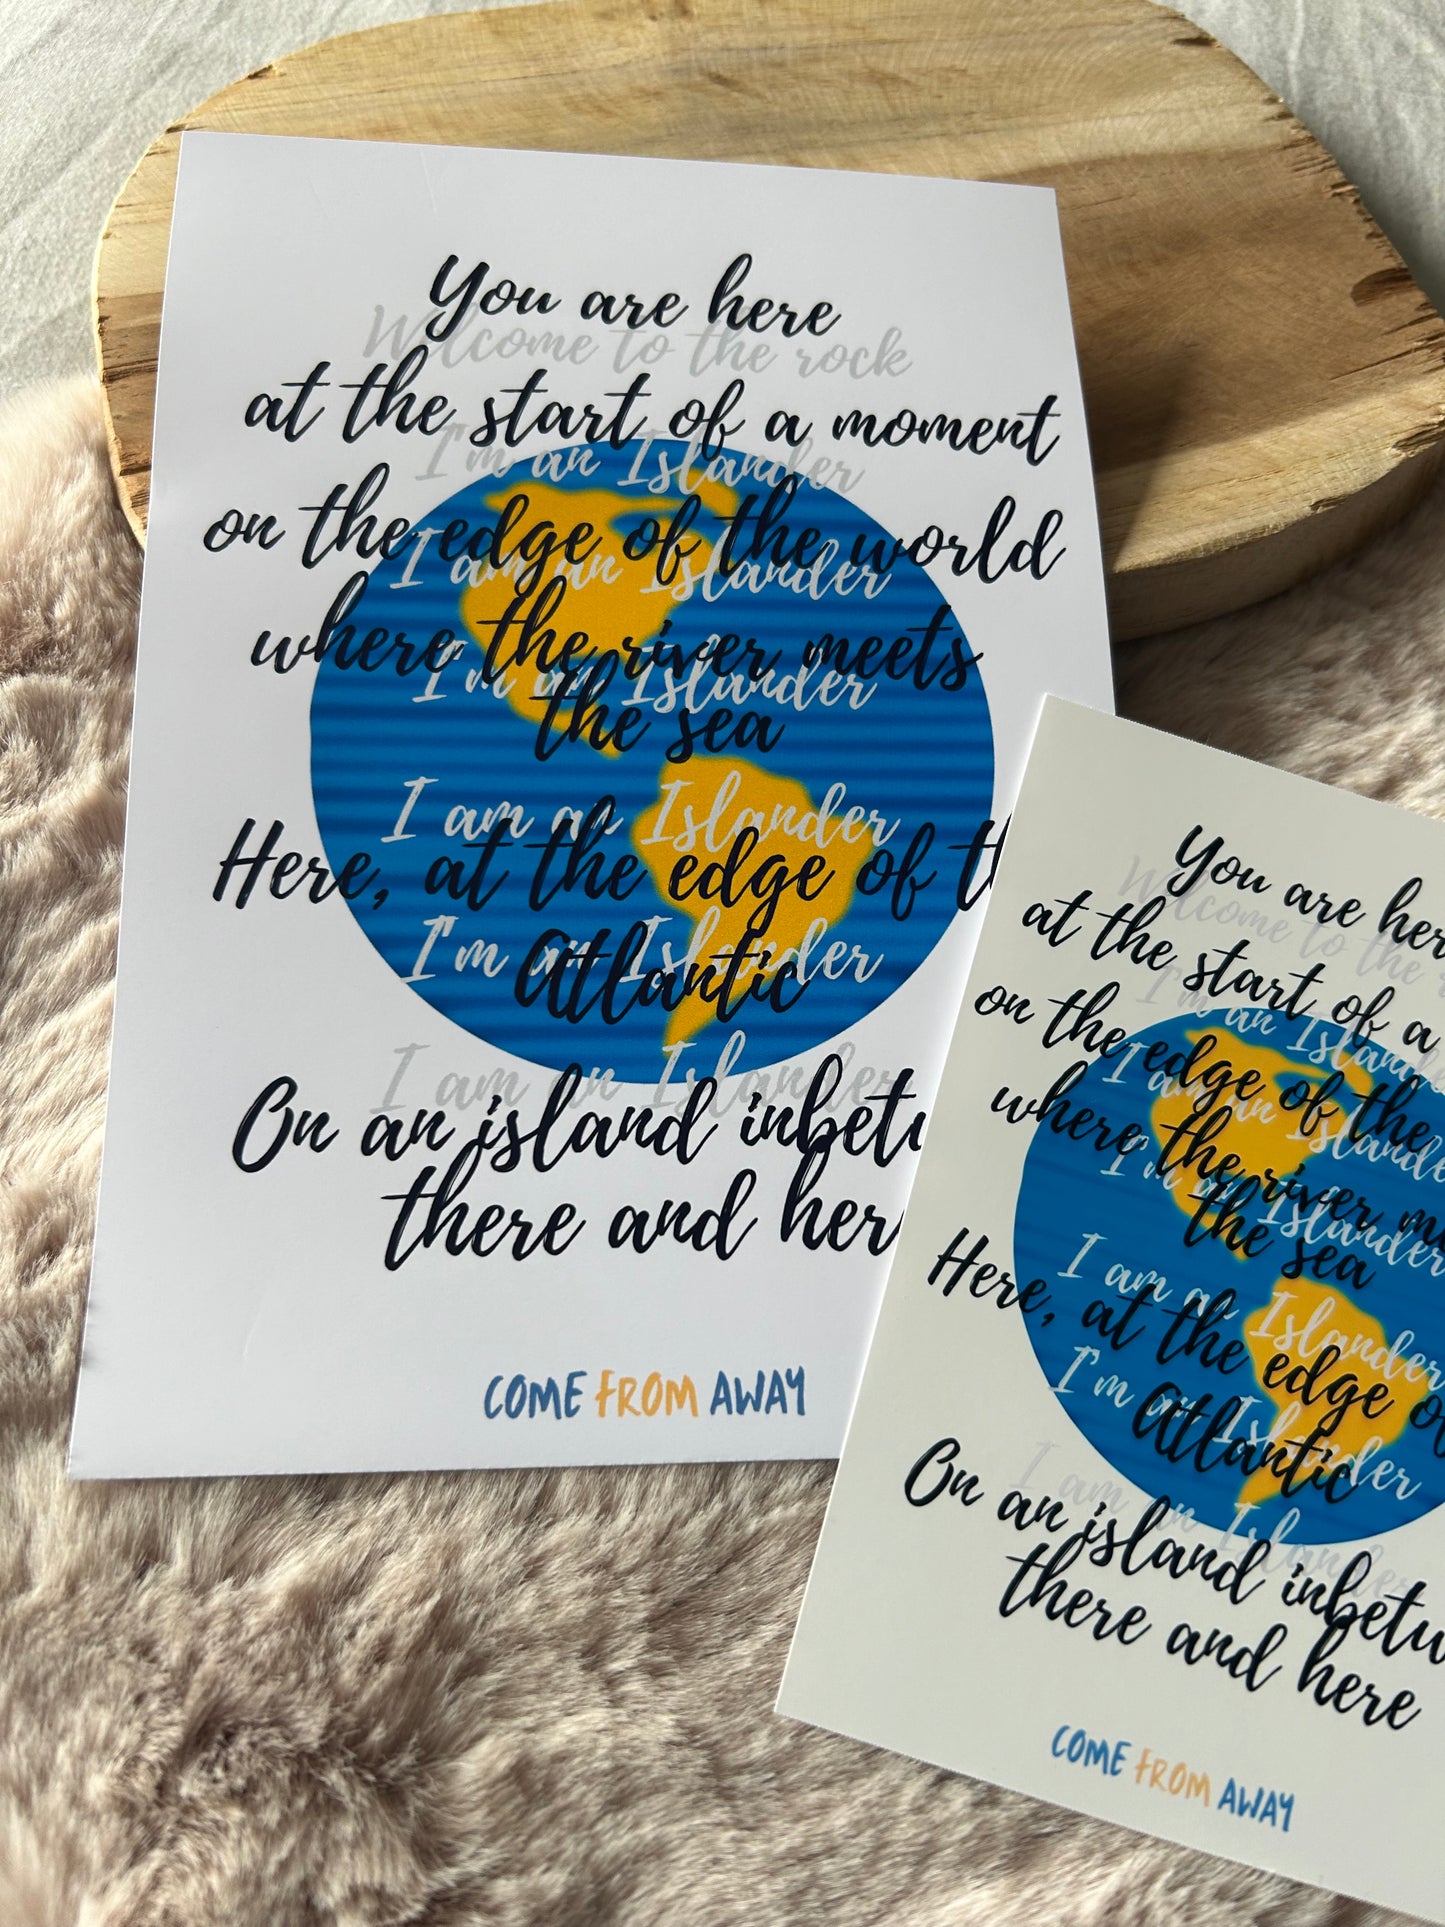 You are here
Welcome to the rock
at the start of a moment
I'm an Islander
on the edge of the world
I am an Islander
where the river meets
I'm an Islander
the sea
I am an Islander
Here, at the edge of
I'm an Islander
Atlantic
I am an Islander
On an island
there and
COME FROM AWAY
You are
Welcome to the
at the start of a
I'm an Islander
on the edge of the
I am an Islander
where the river
I'm an Islander
the sea
I am an Islander
Here, at the edge
I'm an Islander
Atlantic
I am an Islander
On an island
there and here
COME FROM AWAY